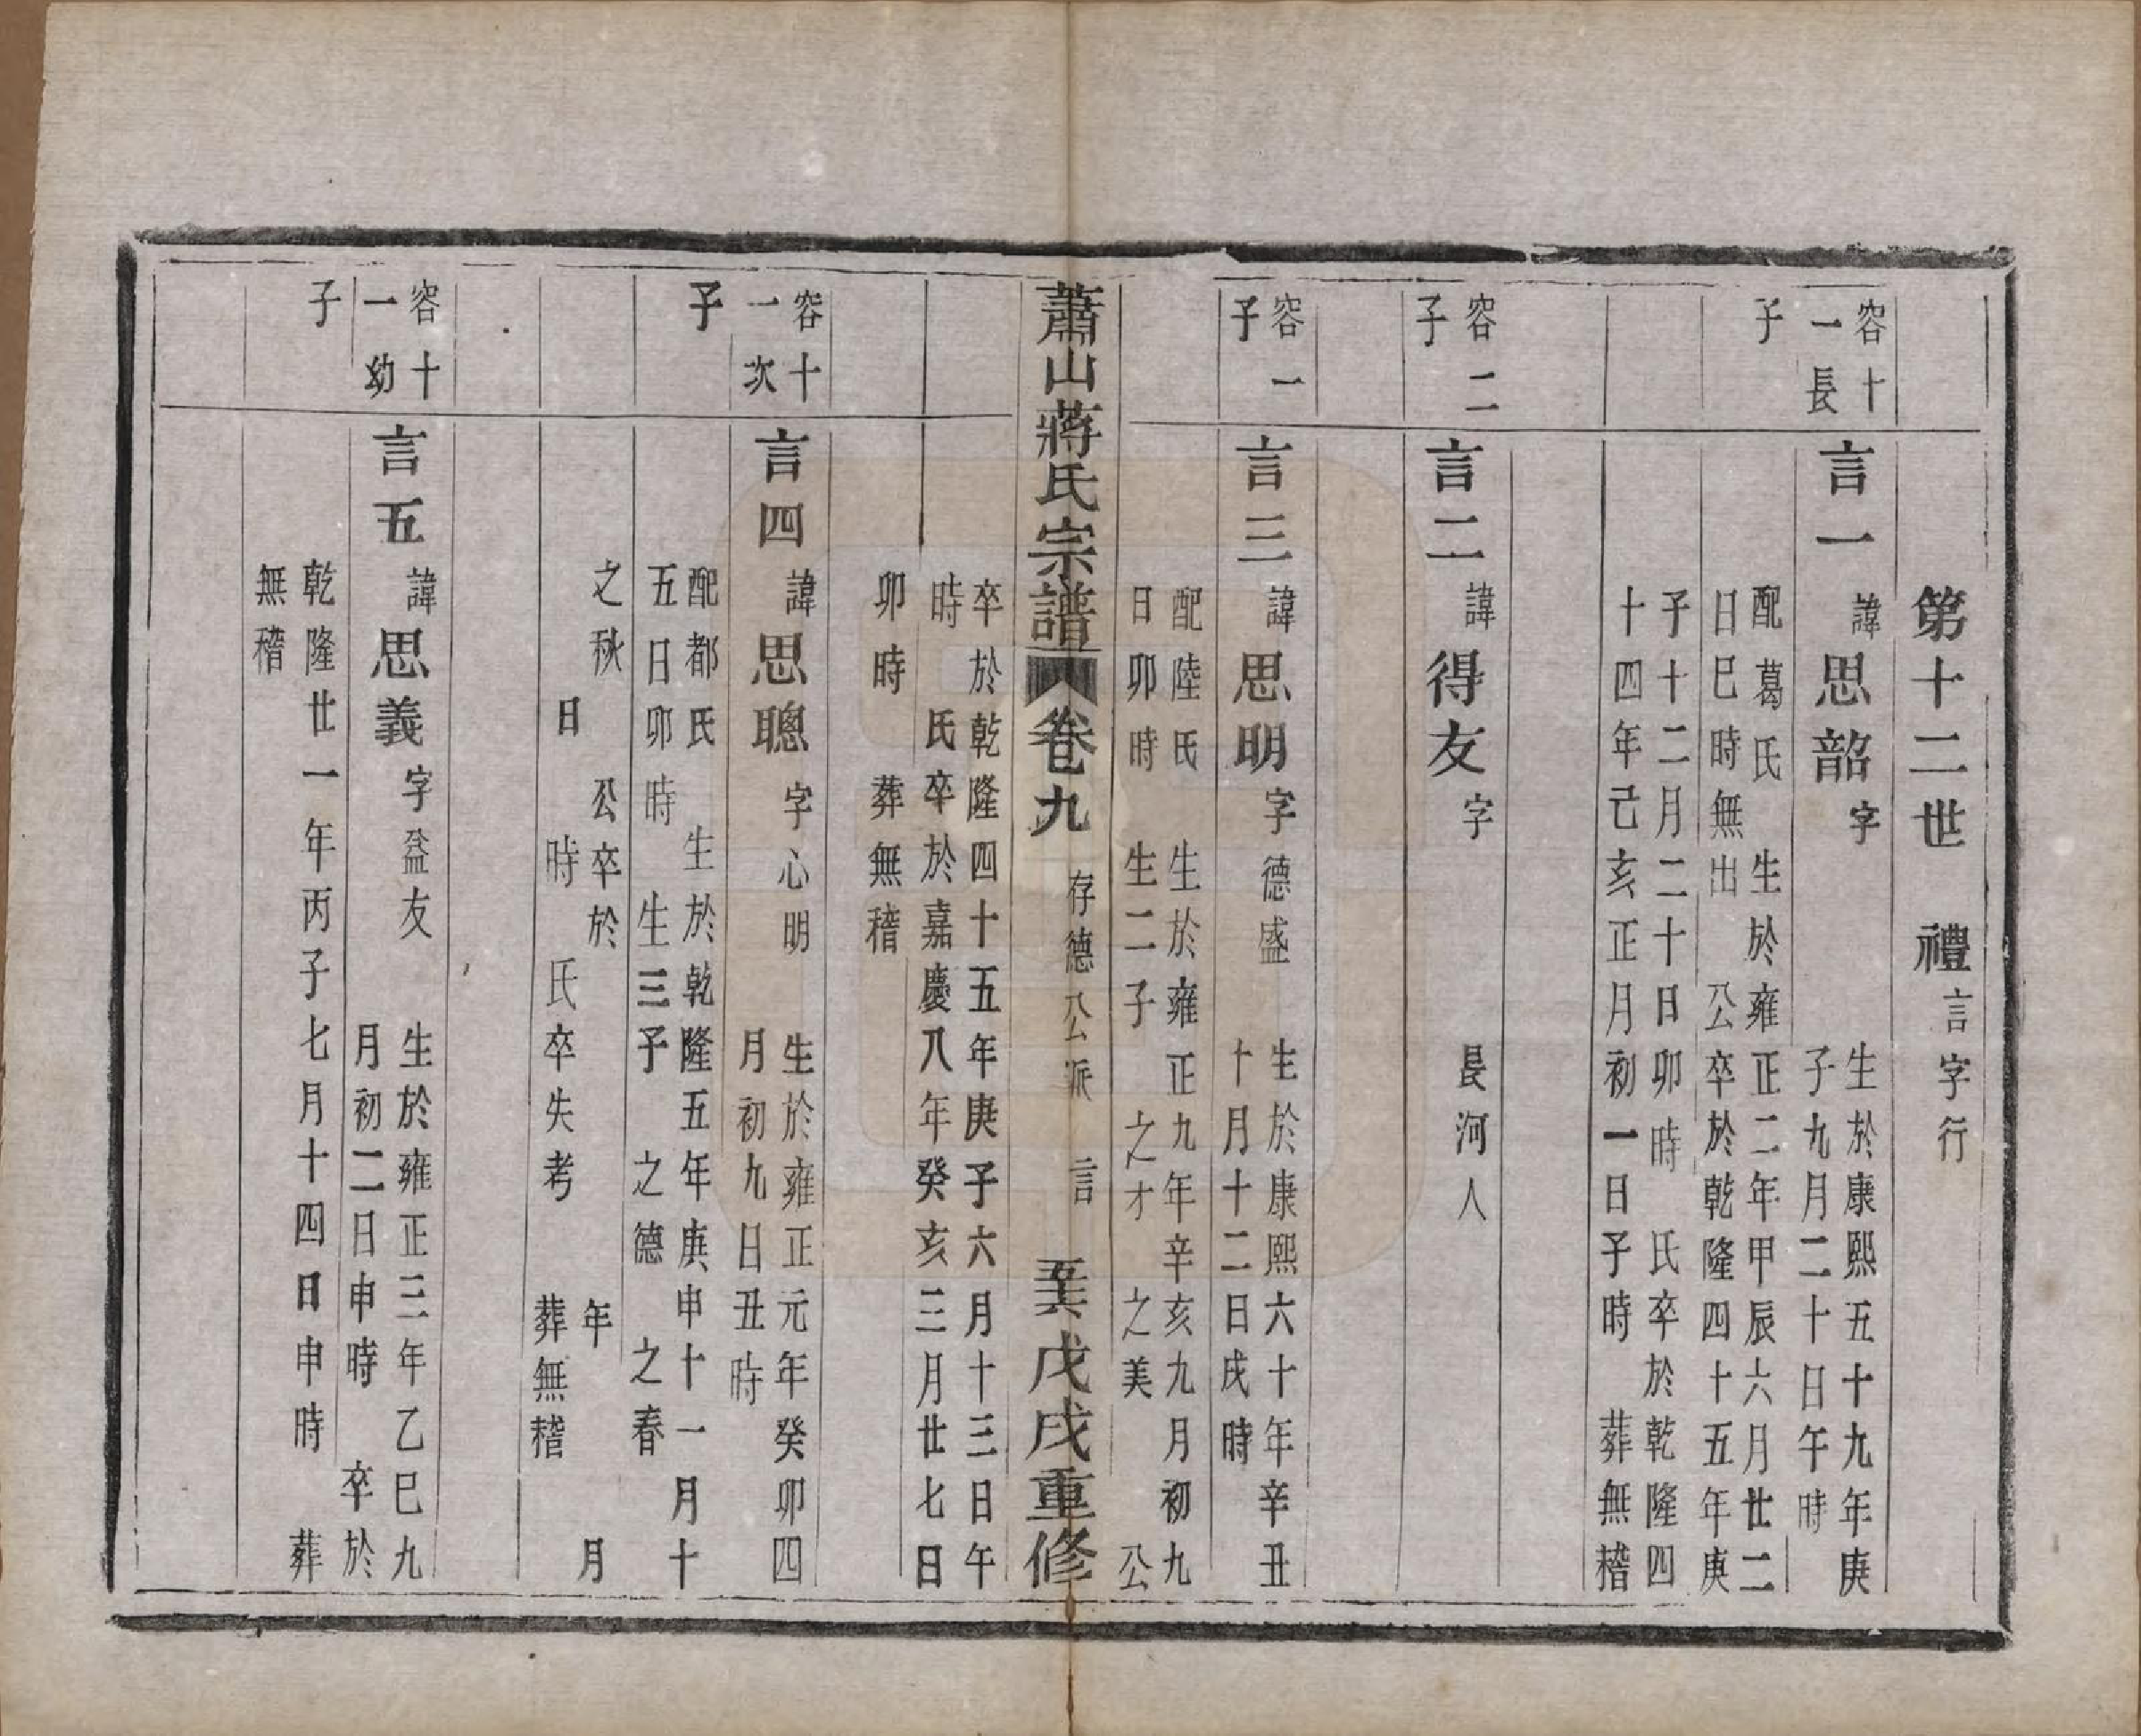 第十二世 禮言字行
容十
一長
子
言一 諱思韶字
生於康熙五十九年庚
子九月二十日午時
配葛氏 生於雍正二年甲辰六月廿二
日巳時無出 公卒於乾隆四十五年庚
子十二月二十日卯時 氏卒於乾隆四
十四年己亥正月初一日子時 葬無稽
容二
子
言二 諱得友字 長河人
容一
子
言三 諱思明字德盛
生於康熙六十年辛丑
十月十二日戌時
配陸氏 生於雍正九年辛亥九月初九
日卯時 生二子 之才 之美 公
蕭山蔣氏宗譜 卷九 存德公派 言 戊戌重修
卒於乾隆四十五年庚子六月十三日午
時 氏卒於嘉慶八年癸亥三月廿七日
卯時 葬無稽
容十
一次
子
言四 諱思聰字心明
生於雍正元年癸卯四
月初九日丑時
配都氏 生於乾隆五年庚申十一月十
五日卯時 生三子 之德 之春
之秋 公卒於 年 月
日 時 氏卒失考 葬無稽
容十
一幼
子
言五 諱思義字益友
生於雍正三年乙巳九
月初二日申時 卒於
乾隆廿一年丙子七月十四日申時 葬
無稽